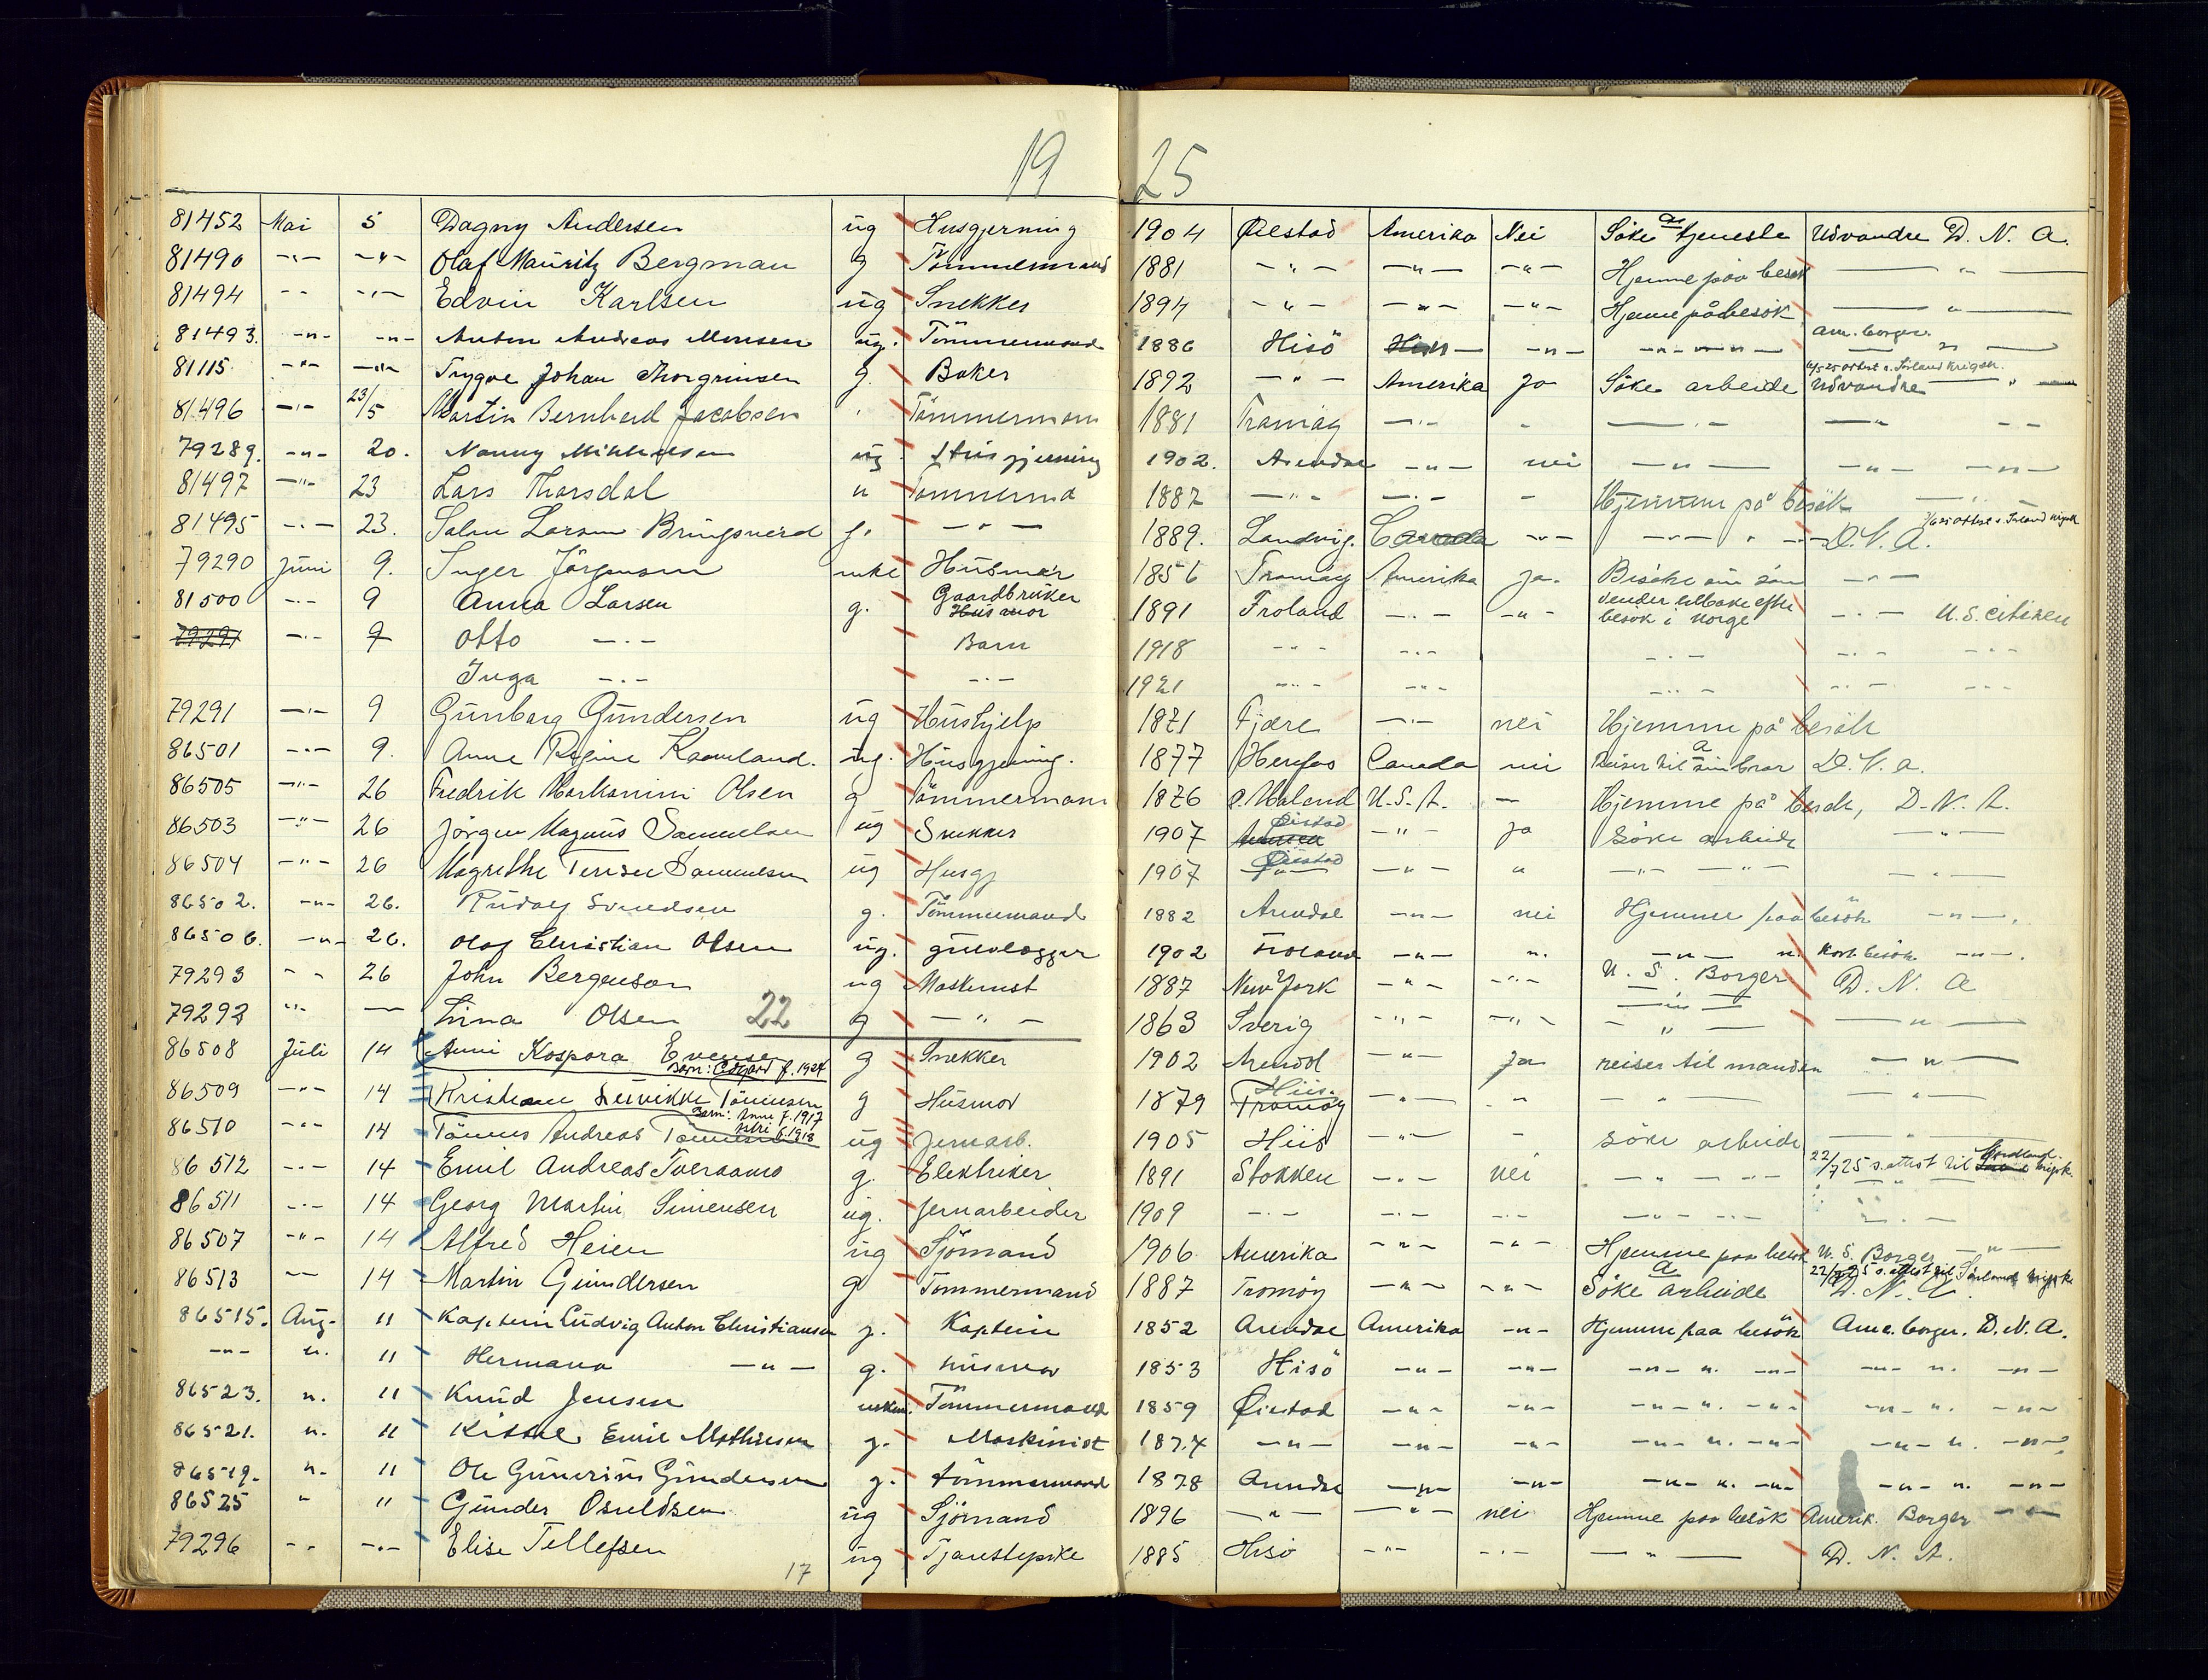 19 25
81452 Mai 5 Dagny Andersen ug Husgjerning 1904 Øiestad Amerika Nei Söke ar tjeneste Udvandre D. N. A.
81490 -"- -"- Olaf Mauritz Bergman g Tömmermand 1881 -"- -"- -"- Hjemme paa besøk -"-
81494 -"- -"- Edvin Karlsen ug Snekker 1894 -"- -"- -"- Hjemme på besök -"-
81493. -"- -"- Anton Andreas Monsen ug. Tömmermand 1886 Hisö -"- -"- -"- am. borger. -"-
81115 -"- -"- Trygve Johan Thorgrimsen g. Baker 1892 -"- Amerika Ja Söke arbeide Udvandre -"-
81496 -"- 23/5 Martin Bernhard Jacobsen " Tömmermann 1881 Tromøy -"- - -"- -"- -"-
79289. -"- 20. Nanny ug Husgjerning 1902. Arendal -"- nei -"- -"- -"-
81497 -"- 23 Lars Thorsdal u Tömmerma 1887 -"- -"- - Hjemme på besök -"-
81495 -"- 23. Larsen Bringsverd g. -"- 1889. Landvig. Canada -"- -"- D. N. A.
79290 Juni 9. Inger Jörgensen enke Husmor 1856 Tromøy Amerika ja. Besöke sin sön -"-
81500 -"- 9 Anna Larsen g. Gaardbruker Husmor 1891 Froland -"- -"- vender tilbake efter besök i Norge -"- U.S. Citizen
79291 -"- 9 Otto -"- Barn 1918 -"- -"- -"- -"- -"-
Inga -"- -"- 1921 -"- -"- -"- -"- -"-
79291 -"- 9 Gunborg Gundersen ug Hushjelp 1871 Fjære -"- nei Hjemme på besök
86501 -"- 9. Anne Regine ug. Husgjerning. 1877 Herefos Canada nei Reiser til a sin bror D. N. A.
86505 -"- 26 Fredrik Olsen g Tömmermann 1876 Ø. Moland U.S.A. - Hjemme på besök, D. N. A.
86503 -"- 26 Jörgen Magnus Samuelsen ug Snekker 1907 Øiestad -"- ja Söke arbeide -"-
86504 -"- 26 Magrethe Samuelsen ug Husgj 1907 Øiestad -"- " -"- -"- -"-
86502. -"- 26. Rudolf Svendsen g. Tömmermand 1882 Arendal -"- nei Hjemme paa besök -"-.
86506. -"- 26. Olaf Christian Olsen ug. gulvlegger 1902 Froland -"- ". -"- ". Kort besök. -"-.
79293 -"- 26 John Bergenson ug Maskinist 1887 New York -"- -"- U. S. Borger D. N. A
79292 -"- — Lina Olsen 22 g -"- 1863 Sverig -"- -"- -"- -"-
86508 Juli 14 Anni Kospara Evensen Barn: Edgard f. 1924 g Snekker 1902 Arendal -"- Ja reiser til manden -"-
86509 -"- 14 Kristiane Tönnesen Barn: Anne f. 1917 f. 1918 g Husmor 1879 Hiis. Tromøy -"- " -"- -"-
86510 -"- 14 Tönnes Andreas Tönnesen ug Jernarb. 1905 Hiis -"- - söke arbeide -"-
86512 -"- 14 Emil Andreas Tveraamo g. Elektriker 1891 Stokken -"- nei -"- 22/7 25 s. attest til Nordland krigsk.
86511 -"- 14 Georg Martin Simensen ug. Jernarbeider 1909 -"- -"- -"- -"- -"-
86507 -"- 14 Alfred Heien ug Sjömand 1906 Amerika -"- -"- Hjemme paa besök U. S. Borger -"-
86513 -"- 14 Martin Gundersen g Tommermand 1887 Tromöy -"- -"- Söke a arbeide 22/7 25 s. attest til Sörland krigsk. D. N. A.
86515. Aug. 11 Kaptein Ludvig Anton Christiansen g. Kaptein 1852 Arendal Amerika -"- Hjemme paa besök Ame. borger. D. N. A.
-"- ". 11 Hermana -"- g. husmor 1853 Hisö -"- -"- -"- ". -"- -"- ". -"-
86523. ". 11 Knud Jensen enkem. Tömmermand 1859 Øiestad -"- -"- -"- ". -"- -"- ". -"-
86521. ". 11 Kittel Emil Mathiesen g. Maskinist 1874 -"- -"- -"- -"- ". -"- -"- ". -"-
86519. ". 11 Ole Gunerius Gundersen g. tömmermand 1878 Arendal -"- -"- -"- ". -"- -"- ". -"-
86525 " 11 Gunder Osuldsen ug Sjömand 1896 -"- -"- nei Hjemme paa besök Amerik. Borger -"-
79296 -"- -"- Elise Tellefsen ug Tjenestepike 1885 Hisö -"- -"- -"- D. N. A.
17